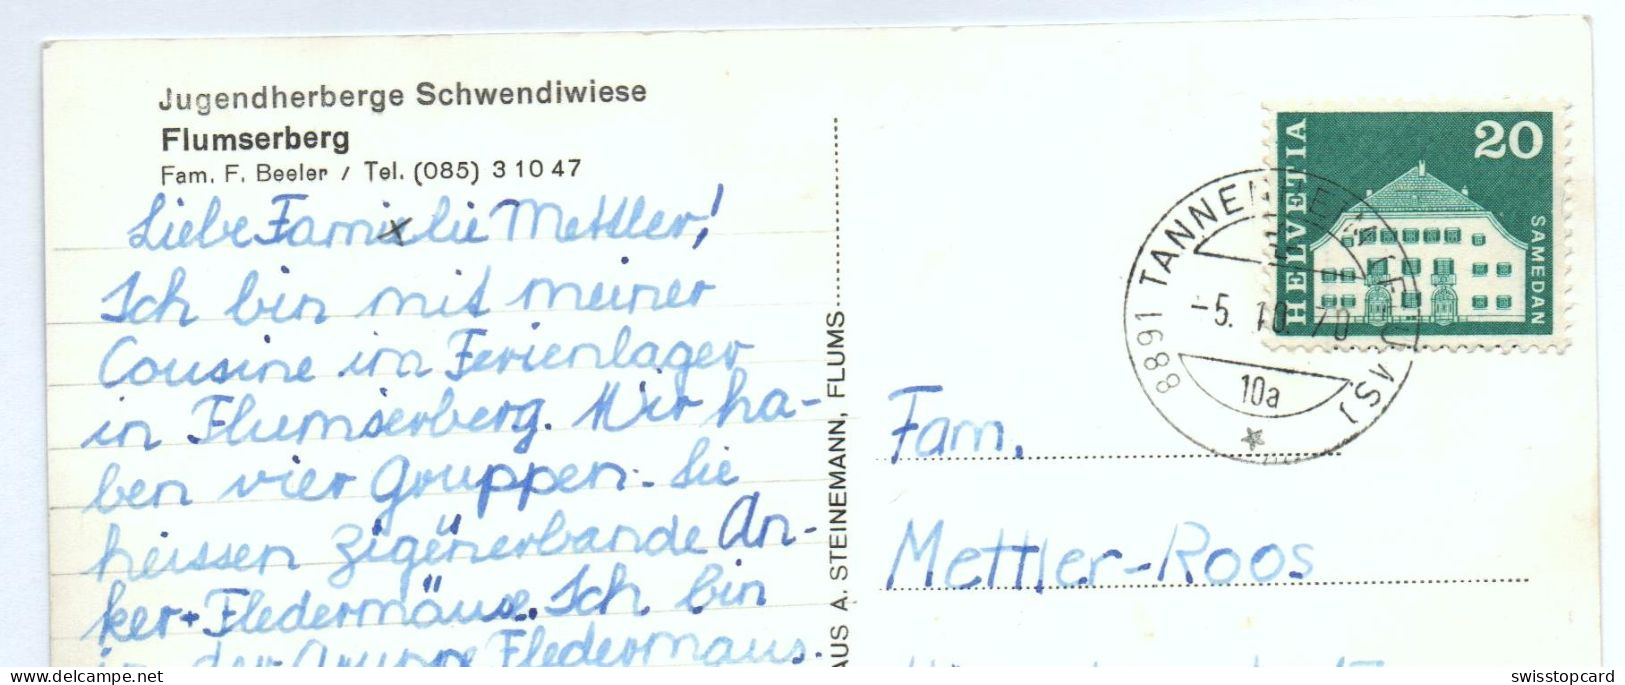 Jugendherberge Schwendiwiese
Flumserberg
Fam. F. Beeler / Tel. (085) 3 10 47
Liebe Familie Mettler!
Ich bin mit meiner
Cousine im Ferienlager
in Flumserberg. Wir ha-
ben vier Gruppen. Sie
heissen Zigënerbande An-
ker + Fledermäuse. Ich bin
in der Gruppe Fledermaus.
AUS A. STEINEMANN, FLUMS
HELVETIA
20
SAMEDAN
8891 TANNEN
-5. 10. 70
10a
Fam.
Mettler-Roos
swisstopcard